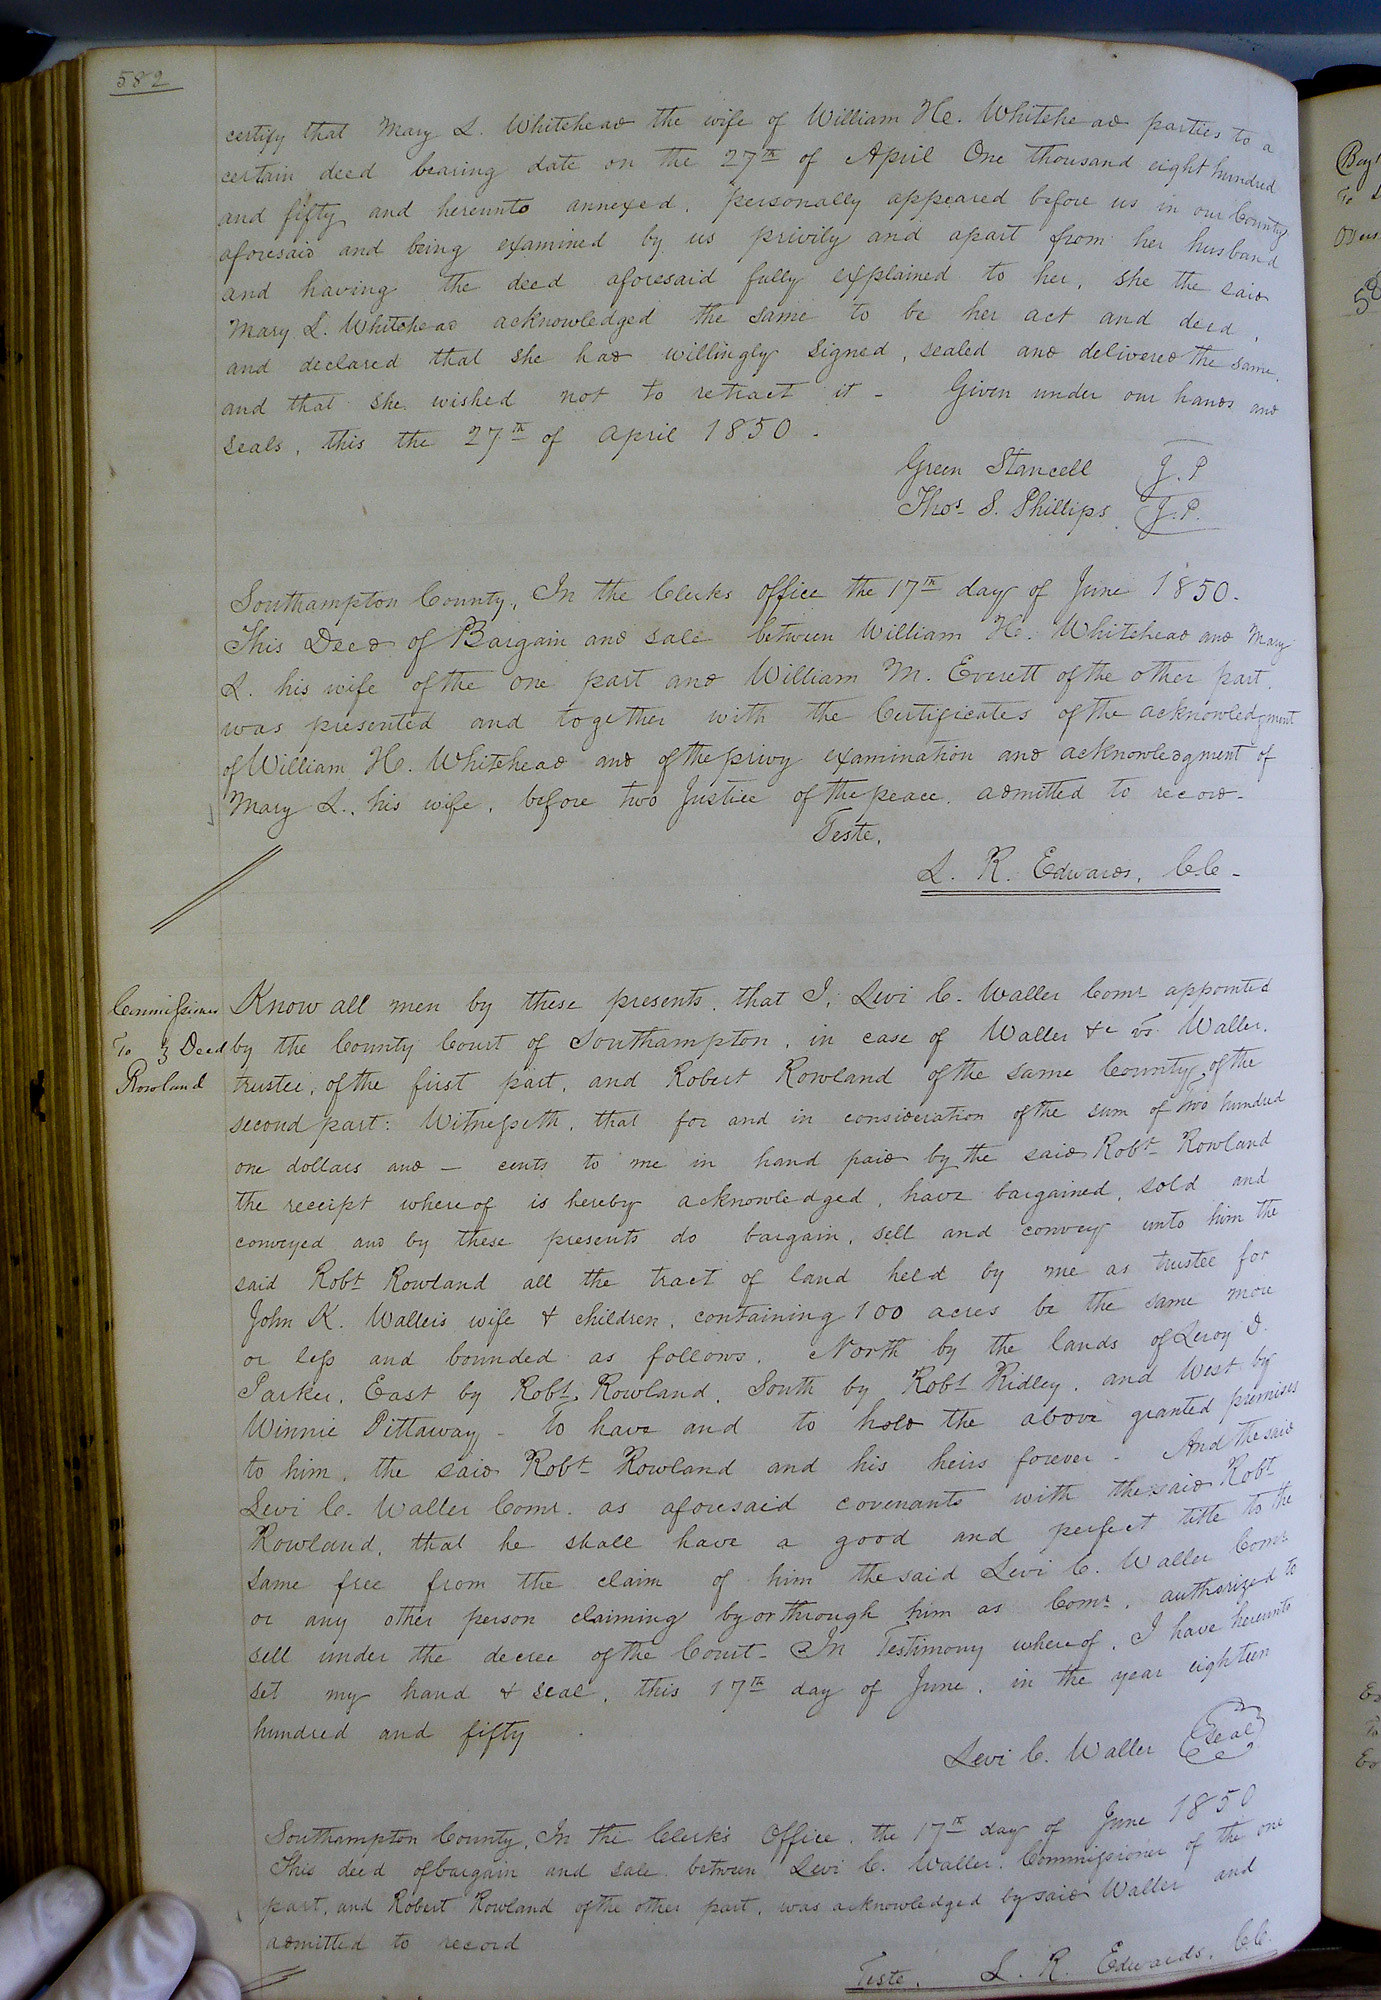 582
certify that Mary L. Whitehead the wife of William H. Whitehead parties to a
certain deed bearing date on the 27th of April One thousand eight hundred
and fifty and hereunto annexed, personally appeared before us in our County
aforesaid and being examined by us privily and apart from her husband
and having the deed aforesaid fully explained to her, she the said
Mary L. Whitehead acknowledged the same to be her act and deed,
and declared that she had willingly signed, sealed and delivered the same,
and that she wished not to retract it - Given under our hands and
seals, this the 27th of April 1850.
Green Stancell J.P
Thos. S. Phillips J.P.
Southampton County, In the Clerks office the 17th day of June 1850.
This Deed of Bargain and sale between William H. Whitehead and Mary
L. his wife of the one part and William M. Everett of the other part,
was presented and together with the Certificates of the acknowledgment
of William H. Whitehead and of the privy examination and acknowledgment of
Mary L., his wife, before two Justice of the peace, admitted to record -
Teste,
L. R. Edwards, C.C -
Commissioner
To } Deed
Rowland
Know all men by these presents, that I, Levi C. Waller Comr appointed
by the County Court of Southampton, in case of Waller &c vs. Waller,
trustee, of the first part, and Robert Rowland of the same County, of the
second part: Witnesseth, that for and in consideration of the sum of two hundred
one dollars and — cents to me in hand paid by the said Robt Rowland
the receipt whereof is hereby acknowledged, have bargained, sold and
conveyed and by these presents do bargain, sell and convey unto him the
said Robt Rowland all the tract of land held by me as trustee for
John K. Waller's wife & children, containing 100 acres be the same more
or less and bounded as follows, North by the lands of Leroy D.
Parker, East by Robt. Rowland, South by Robt Ridley, and West by
Winnie Pittaway - To have and to hold the above granted premises
to him, the said Robt Rowland and his heirs forever - And the said
Levi C. Waller Comr. as aforesaid covenants with the said Robt
Rowland, that he shall have a good and perfect title to the
same free from the claim of him the said Levi C. Waller Comr
or any other person claiming by or through him as Comr. authorized to
sell under the decree of the Court - In Testimony whereof, I have hereunto
set my hand & seal, this 17th day of June, in the year eighteen
hundred and fifty.
Levi C. Waller Seal
Southampton County, In the Clerk's Office, the 17th day of June 1850
This deed of bargain and sale between Levi C. Waller, Commissioner of the one
part, and Robert Rowland of the other part, was acknowledged by said Waller and
admitted to record
Teste, L. R. Edwards, C.C.